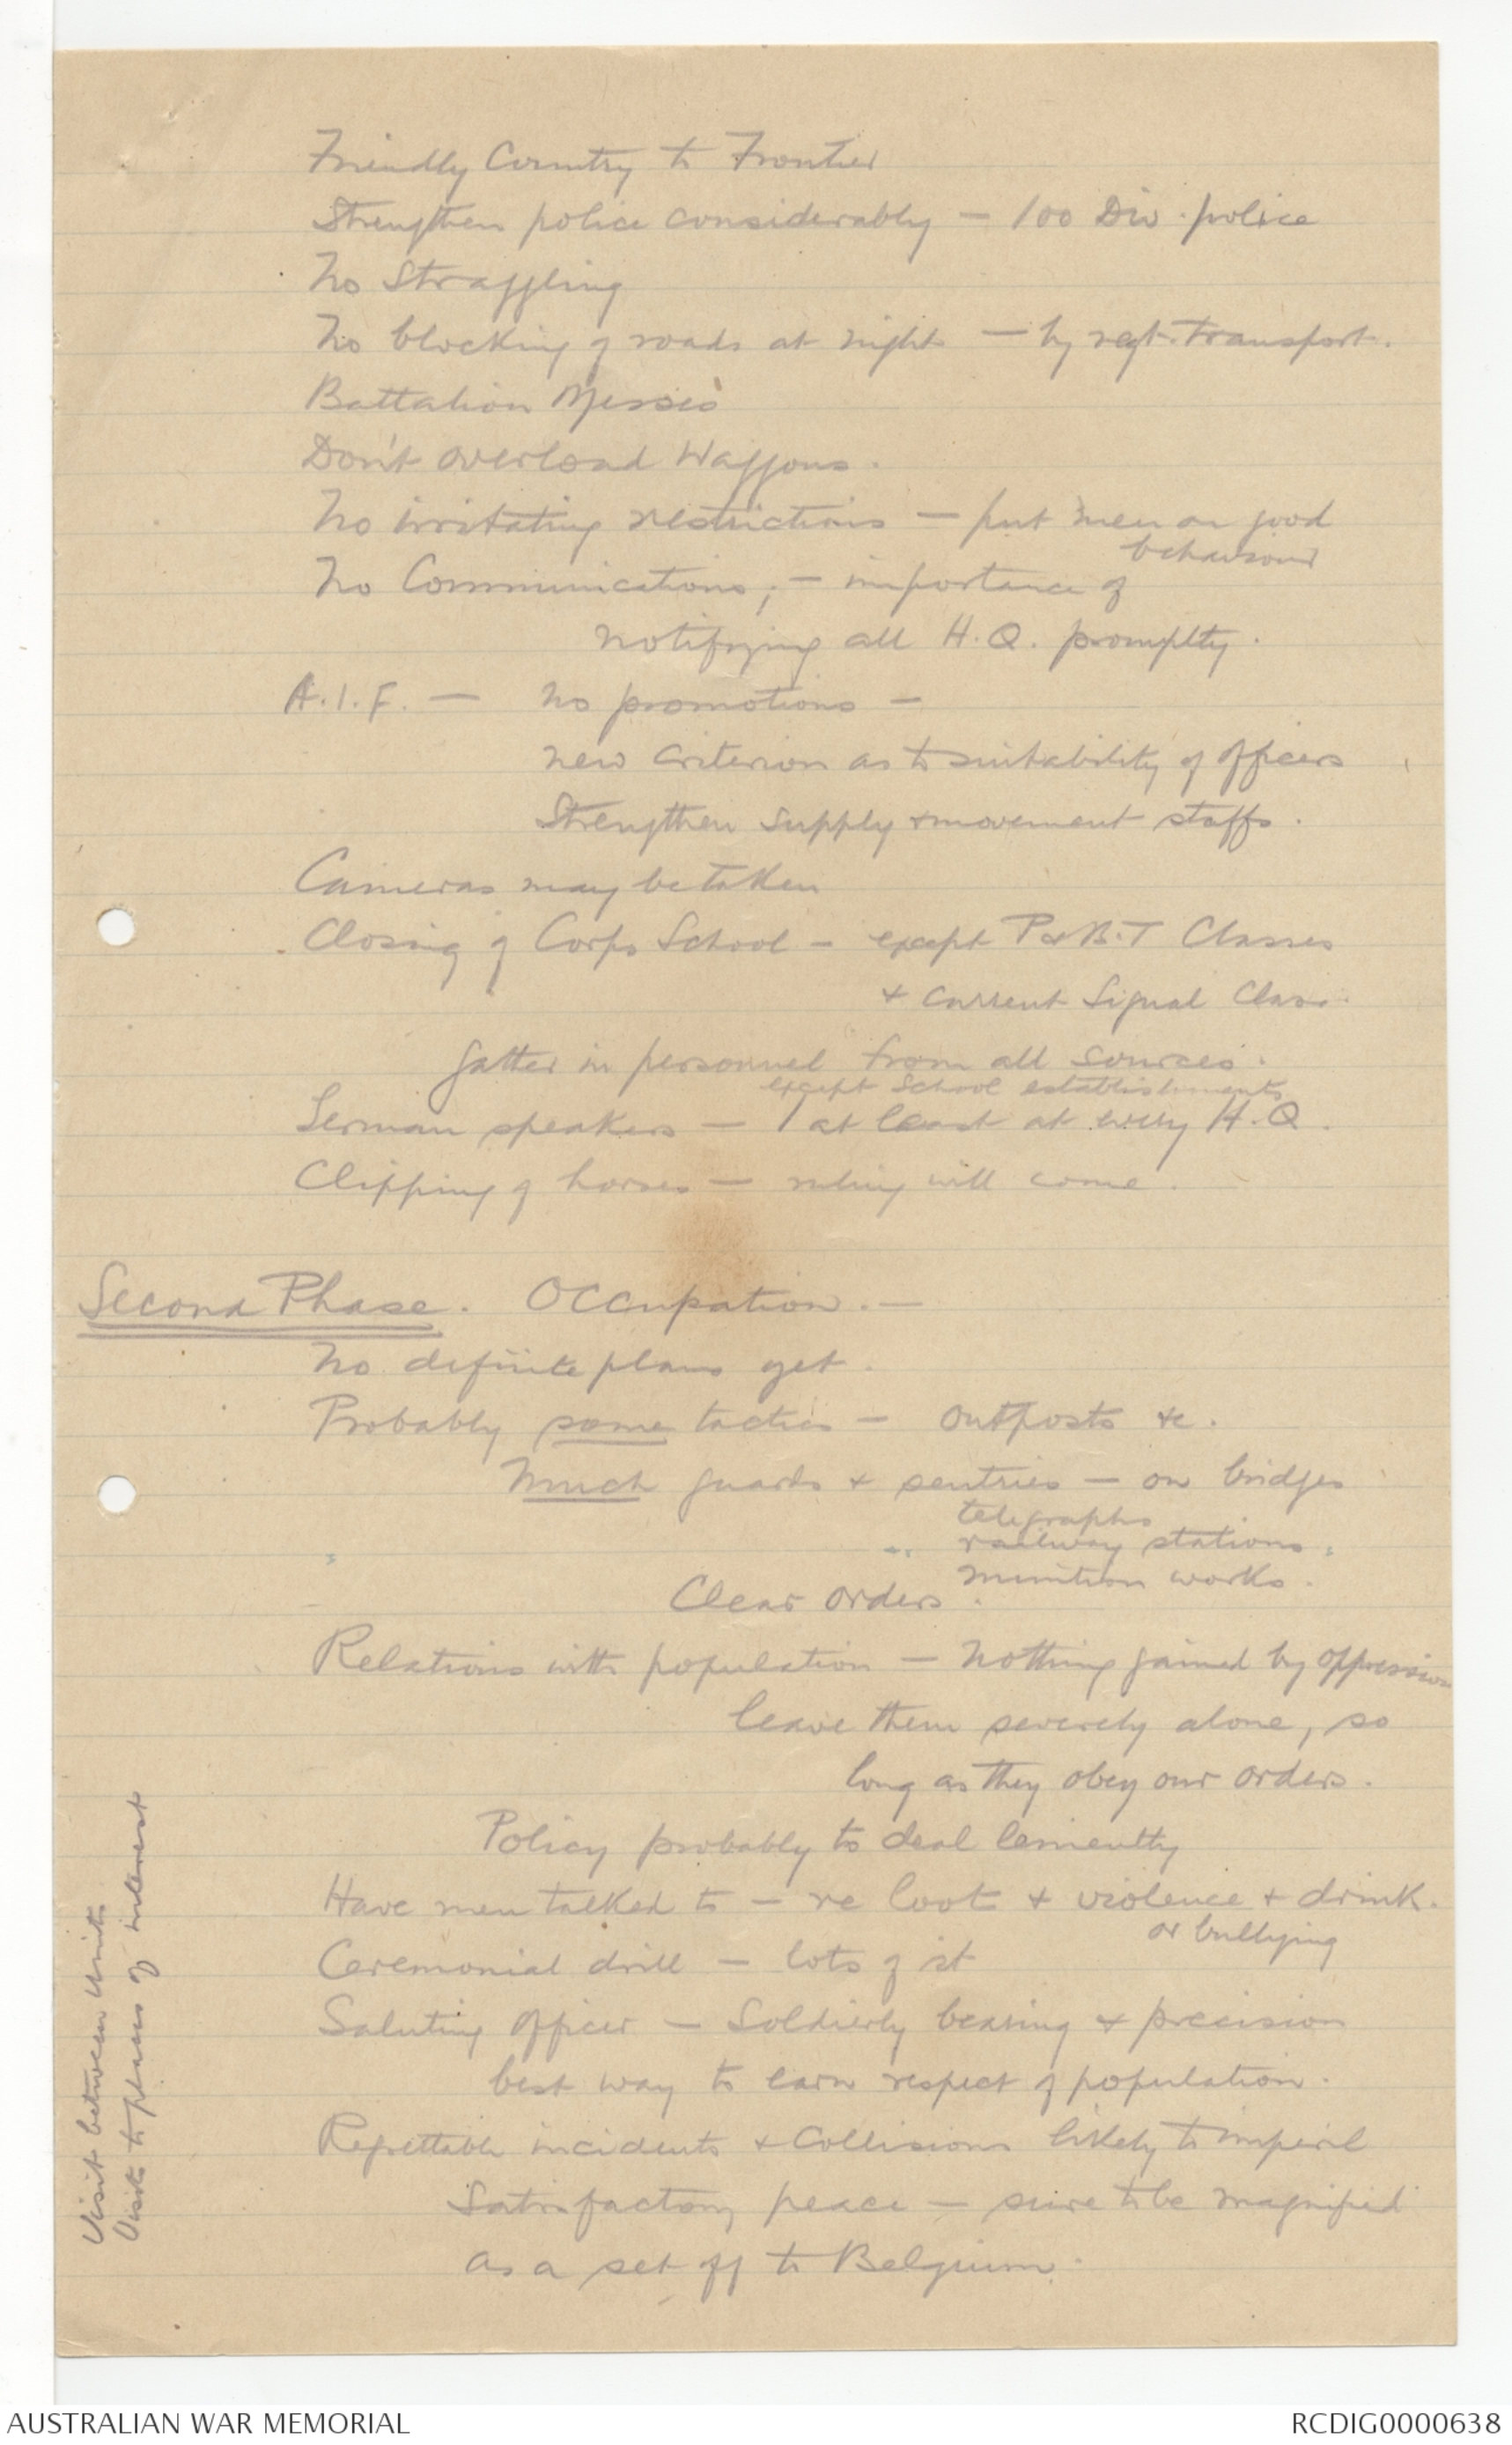 Friendly Country to Frontier
Strengthen police considerably – 100 Div. police
No Straggling
No blocking of roads at night – by regt. transport.
Battalion Messes
Don't overload Waggons.
No irritating restrictions – put men on good
behaviour
No Communications; – importance of
notifying all H.Q. promptly.
A.I.F. – No promotions –
new criterion as to suitability of officers
Strengthen supply & movement staffs.
Cameras may be taken
Closing of Corps School – except P & B.T Classes
& current Signal Class.
Gather in personnel from all sources.
except School establishments
German speakers – 1 at least at every H.Q.
Clipping of horses – ruling will come.
Second Phase. Occupation. –
No definite plans yet.
Probably some tactics – outposts &c.
Much guards & sentries – on bridges
telegraphs
railway stations.
munition works.
Clear orders.
Relations with population – Nothing gained by oppression
leave them severely alone, so
long as they obey our orders.
Policy probably to deal leniently
Have men talked to – re loot & violence & drink.
or bullying
Ceremonial drill – lots of it
Saluting officer – Soldierly bearing & precision
best way to earn respect of population.
Regrettable incidents & Collisions likely to imperil
Satisfactory peace – sure to be magnified
as a set off to Belgium.
Visit between Units
Visits to places of interest
AUSTRALIAN WAR MEMORIAL
RCDIG0000638